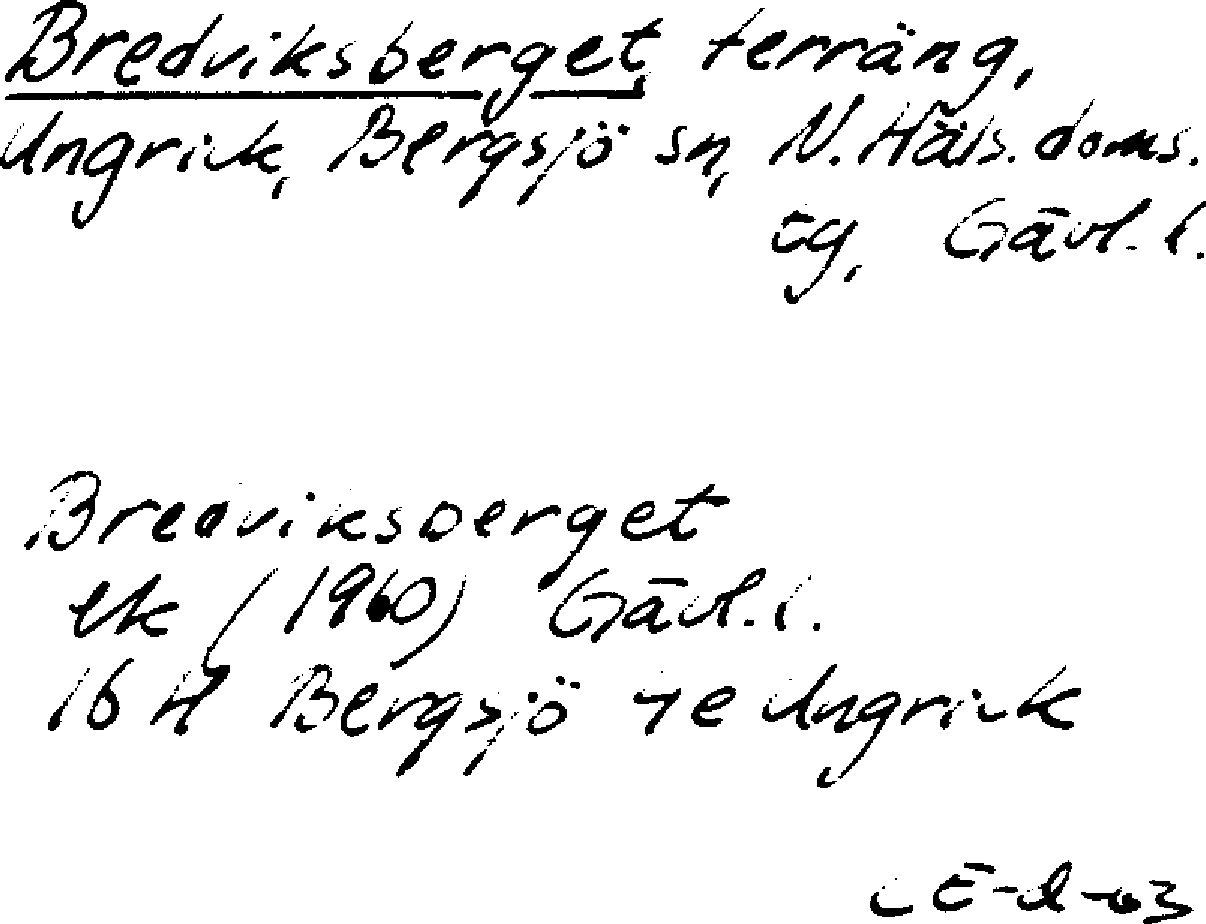 Bredviksberget, terräng,
Ungrick, Bergsjö sn, N. Häls. doms.
tg, Gävl. l.
Bredviksberget
ek (1960) Gävl. l.
16 H Bergsjö 7e Ungrick